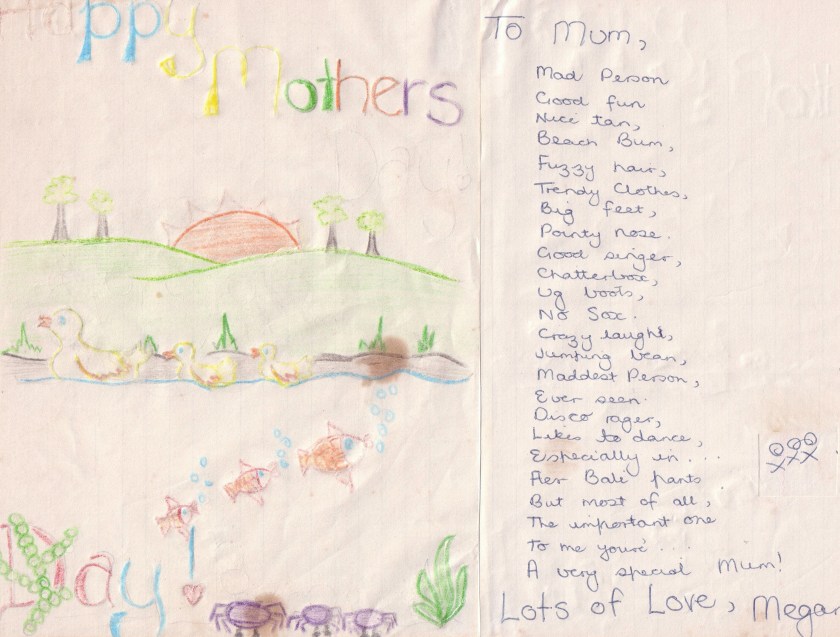 Happy
Mothers
Day!
Day!
To Mum,
Mad Person
Good fun
Nice tan,
Beach Bum,
Fuzzy hair,
Trendy Clothes,
Big feet,
Pointy nose.
Good singer,
Chatterbox,
Ug boots,
No Sox.
Crazy laught,
Jumping bean,
Maddest Person,
Ever seen.
Disco rager,
Likes to dance,
Especially in....
Her Bali pants
But most of all,
The important one
To me youre'....
A very special Mum!
Lots of Love, Megan